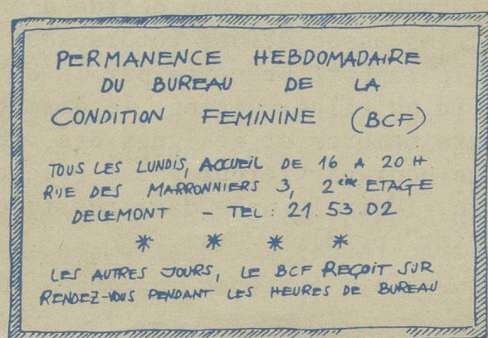 PERMANENCE HEBDOMADAIRE
DU BUREAU DE LA
CONDITION FEMININE (BCF)
TOUS LES LUNDIS, ACCUEIL DE 16 A 20 H
RUE DES MARRONNIERS 3, 2ième ETAGE
DELEMONT - TEL: 21 53 02
* * * *
LES AUTRES JOURS, LE BCF REÇOIT SUR
RENDEZ-VOUS PENDANT LES HEURES DE BUREAU